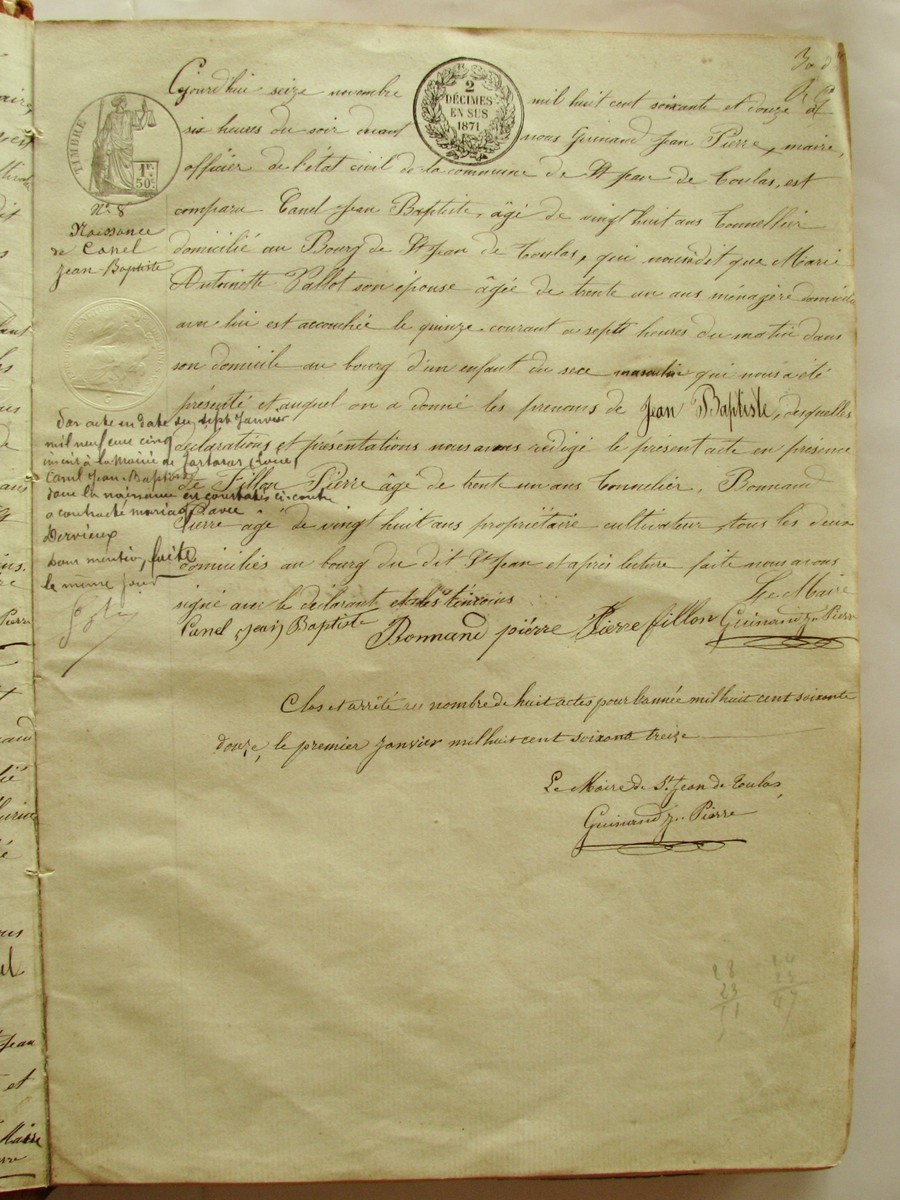 Cejourd'hui seize novembre mil huit cent soixante et douze à
six heures du soir devant nous Guinand Jean Pierre, maire,
officier de l'état civil de la commune de St Jean de Toulas, est
comparu Canel Jean Baptiste, âgé de vingt huit ans Tonnellier
domicilié au Bourg de St Jean de Toulas, qui nous a dit que Marie
Antoinette Vallot son épouse âgée de trente un ans ménagère domiciliée
avec lui est accouchée le quinze courant a sept heures du matin dans
son domicile au bourg d'un enfant du sexe masculin qui nous a été
présenté et auquel on a donné les prenoms de Jean Baptiste, desquelles
déclarations et présentations nous avons rédigé le présent acte en présence
de Fillon Pierre âgé de trente un ans Tonnelier, Bonnand
Pierre âgé de vingt huit ans propriétaire cultivateur, tous les deux
domiciliés au bourg du dit St Jean et après lecture faite nous avons
signé avec le déclarant et les témoins
Le Maire
Canel Jean Baptiste Bonnand pièrre Pierre fillon Guinand Jn Pierre
Clos et arrêté au nombre de huit actes pour l'année mil huit cent soixante
douze, le premier Janvier mil huit cent soixante treize
Le Maire de St Jean de Toulas,
Guinand Jn Pierre
TIMBRE
1 FR.
50 C.
2
DÉCIMES
EN SUS
1871
No 8
Naissance
de Canel
Jean Baptiste
Par acte en date du sept Janvier
mil neuf cent cinq
inscrit à la Mairie de
Canel Jean-Baptiste
dont la naissance est constatée ci-contre
a contracté mariage avec
Dervieux
Pour mention, faite
le même jour
28
23